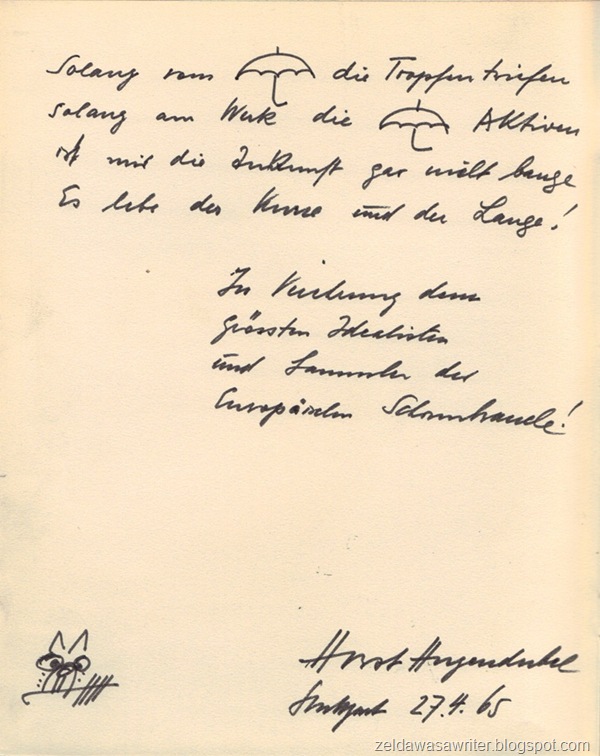 Solang vom die Tropfen triefen
solang am Werk die Aktiven
ist mir die Zukunft gar nicht bange
Es lebe der Kurze und der Lange!
In Verehrung dem
grössten Idealisten
und Sammler der
Europäischen Schirmbranche!
Horst Hugendubel
Stuttgart 27.4.65
zeldawasawriter.blogspot.com